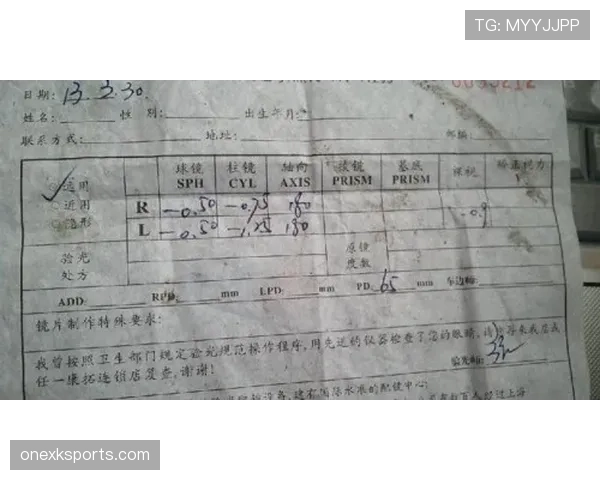 TG: MYYJJPP
0033212
日期: 13.2.30.
姓名: 性 别: 出生年月:
联系方式: 地址: 邮编:
球镜 柱镜 轴向 棱镜 基底 裸视
SPH CYL AXIS PRISM PRISM
远用
近用 R -0.50 -0.75 180 -0.9
隐形 L -0.50 -1.25 180
验光 原镜
处方 度数
ADD: RPD: mm LPD: mm PD: 65 mm
镜片制作特殊要求:
我曾按照卫生部门规定验光规范操作程序,用先进的仪器检查了您的眼睛,请
任一康拓连锁店复查,谢谢! 验光师:
onexksports.com